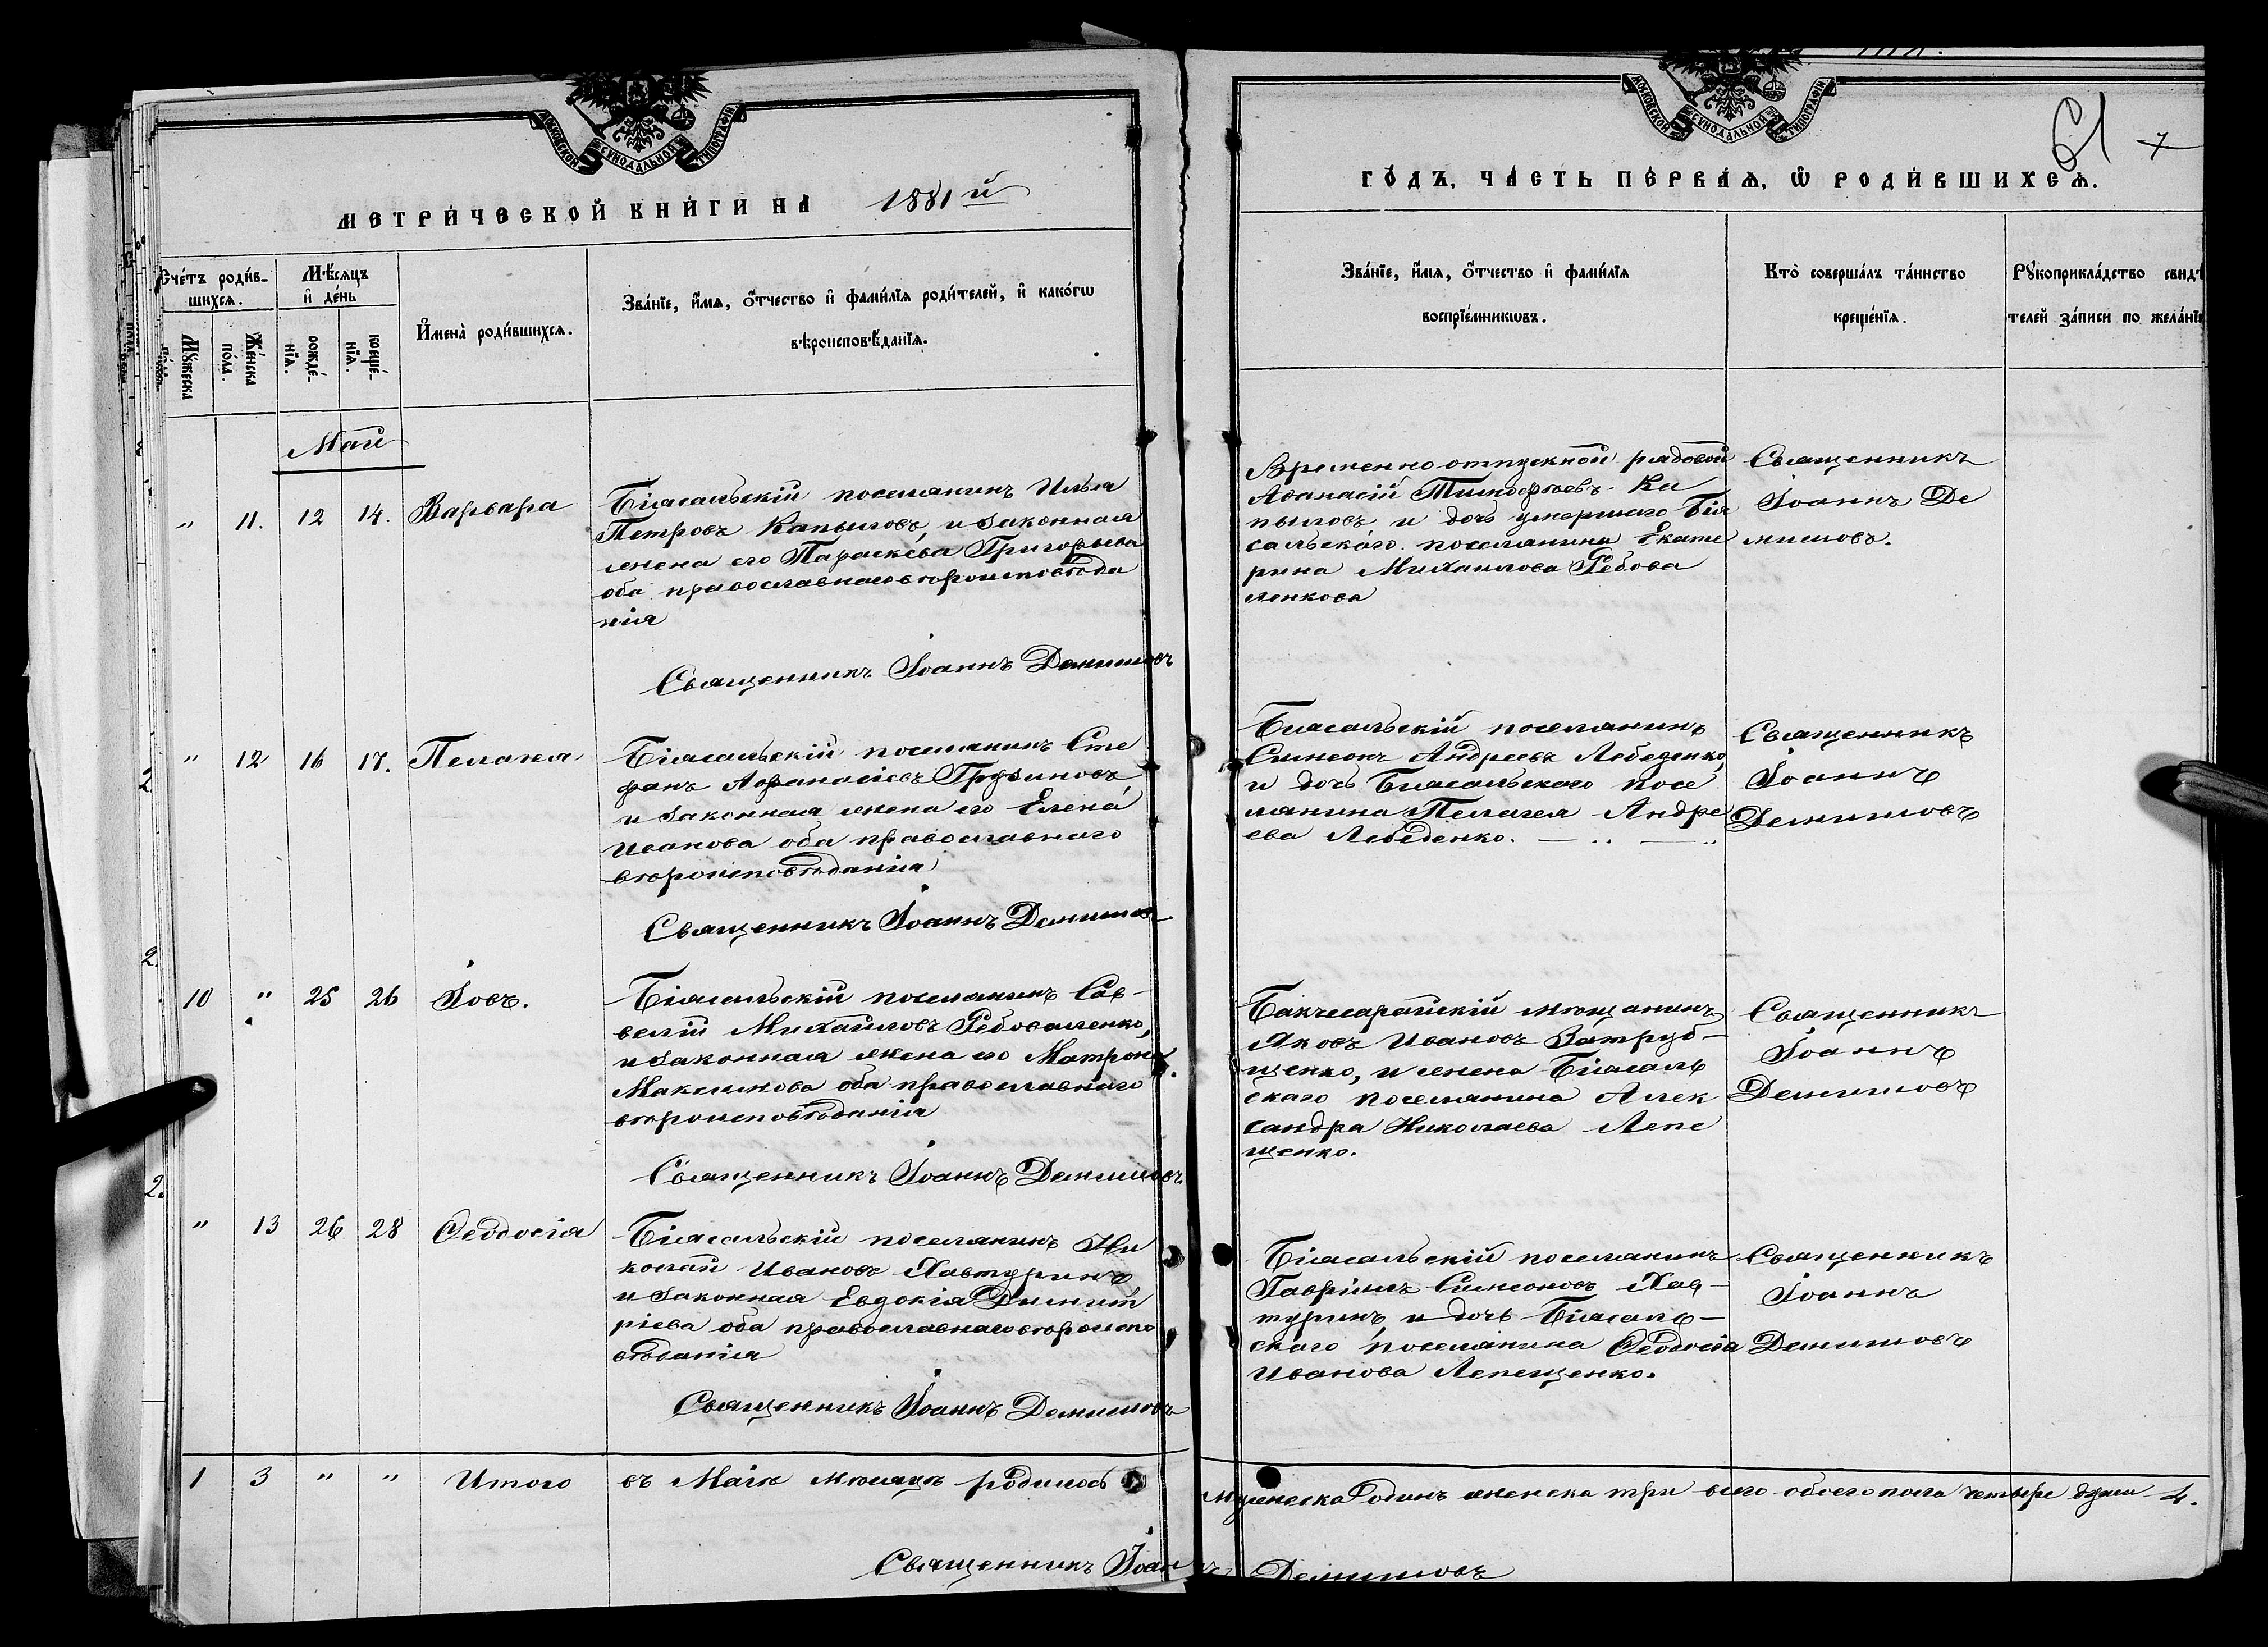 МОСКОВСКОЙ СѴНОДАЛЬНОЙ ТИПОГРАФІИ
МЕТРИ́ЧЕСКОЙ КНИ́ГИ НА 1881й
Сче́тъ роди́в-
шихся.
Мѣ́сяцъ
и҆ де́нь
Му́жеска
по́ла.
Же́нска
по́ла.
рожде́-
нїя.
креще́-
нїя.
И҆мена̀ роди́вшихся.
Зва́нїе, и҆́мя, ѻ҆́тчество и҆ фамі́лїя роди́телей, и҆ како́гѡ
вѣроисповѣ́данїя.
Май
" 11. 12 14. Варвара
Біясальскій поселянинъ Илья
Петровъ Капыловъ, и законная
жена его Параскева Григорьева
оба православнаго вѣроисповѣда
нія
Священникъ Іоаннъ Демишовъ
" 12 16 17. Пелагея
Біясальскій поселянинъ Сте
фанъ Афанасіевъ Грузиновъ
и законная жена его Елена
Иванова оба православнаго
вѣроисповѣданія
Священникъ Іоаннъ Демишовъ
10 " 25 26 Іовъ.
Біясальскій поселянинъ Сав-
велій Михайловъ Рѣбоваленко,
и законная жена его Матрона
Максимова оба православнаго
вѣроисповѣданія
Священникъ Іоаннъ Демишовъ
" 13 26 28 Ѳеодосія
Біясальскій поселянинъ Ни
колай Ивановъ Хавтуринъ
и законная Евдокія Димит
ріева оба православнаго вѣроиспо
вѣданія
Священникъ Іоаннъ Демишовъ
1 3 " " Итого въ Маіѣ мѣсяцѣ родилось
Священникъ Іоан
МОСКОВСКОЙ СѴНОДАЛЬНОЙ ТИПОГРАФІИ
61
7
ГО́ДЪ, ЧА́СТЬ ПЕ́РВАЯ, Ѡ҆ РОДИ́ВШИХСЯ.
Зва́нїе, и҆́мя, ѻ҆́тчество и҆ фамі́лїя
воспрїе́мникѡвъ.
Кто̀ соверша́лъ та́инство
креще́нїя.
Рꙋкоприкла́дство свидѣ́
телей за́писи по жела́нїю
Временно отпускной рядовой
Аѳанасій Тимофѣевъ Ка
пыловъ, и дочь умершаго Бія
сальскаго поселянина Екате
рина Михаилова Рѣбова
ленкова
Священникъ
Іоаннъ Де
мишовъ.
Биасальскій поселянинъ
Симеонъ Андреевъ Лебеденко,
и дочь Биасальскаго посе
лянина Пелагея Андре
ева Лебеденко.
Священникъ
Іоаннъ
Демишовъ
Бакчисарайскій мѣщанинъ
Яковъ Ивановъ Затруб-
щенко, и жена Біасаль
скаго поселянина Алек
сандра Николаева Лепе
щенко.
Священникъ
Іоаннъ
Демишовъ
Біясальскій поселянинъ
Гавріилъ Симеоновъ Хав-
туринъ, и дочь Біасаль-
скаго поселянина Ѳеодосія
Иванова Лепещенко.
Священникъ
Іоаннъ
Демишовъ
мужеска одинъ женска три всего обоего пола четыре души 4.
нъ Демишовъ